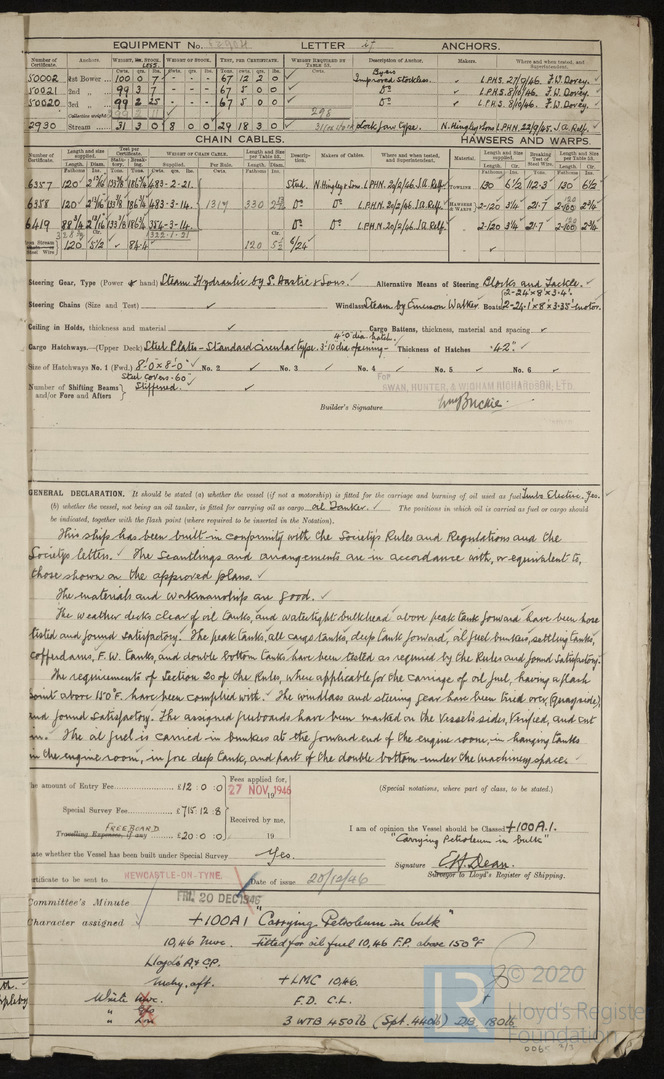 EQUIPMENT No. LETTER ANCHORS.
Number of Certificate. Anchors. WEIGHT, Ex. STOCK. WEIGHT OF STOCK. TEST, PER CERTIFICATE. WEIGHT REQUIRED BY TABLE 53. Description of Anchor. Makers. Where and when tested, and Superintendent.
Cwts. qrs. lbs. Cwts. qrs. lbs. Tons. cwts. qrs. lbs. Cwts.
50002 1st Bower 100 0 7 67 12 2 0 Byers Improved Stockless. L.P.H.S. 27/9/46. F.W. Dovey.
50021 2nd „ 99 3 7 67 5 0 0 Do L.P.H.S. 8/10/46. F.W. Dovey.
50020 3rd „ 99 2 25 67 5 0 0 Do L.P.H.S. 8/10/46. F.W. Dovey.
Collective weight
2930 Stream 31 3 0 8 0 0 29 18 3 0 Stock Jaw type. N. Hingley & Sons L.P.H.N. 22/9/45. J.A. Relf.
CHAIN CABLES. HAWSERS AND WARPS.
Number of Certificate. Length and size supplied. Test per Certificate. WEIGHT OF CHAIN CABLE. Length and Size per Table 53. Description. Makers of Cables. Where and when tested, and Superintendent. Material. Length and size supplied. Breaking Test of Steel Wire. Length and Size per Table 53.
6357 120 2 13/16 133 7/8 186 7/8 483-2-21. Stud. N. Hingley & Sons. L.P.H.N. 20/2/46. J.A. Relf. TOWLINE 130 6 1/2 112.3 130 6 1/2
6358 120 2 13/16 133 7/8 186 7/8 483-3-14. 1317 330 2 13/16 Do Do L.P.H.N. 20/2/46. J.A. Relf. HAWSERS & WARPS 2-120 3 1/4 21.7 2-120 2 3/4
6419 88 3/4 2 13/16 133 7/8 186 7/8 354-3-14. Do Do L.P.H.N. 20/2/46. J.A. Relf. 2-120 3 1/4 21.7 2-120 2 3/4
Steel Wire 120 5 1/2 84.4 120 5 1/2 6/24
Steering Gear, Type (Power & hand) Steam Hydraulic by S. Hastie & Sons. Alternative Means of Steering Blocks and Tackle.
Steering Chains (Size and Test) Windlass Steam by Emerson Walker. Boats 2-24'×8'×3.4'. 2-24.1'×8'×3.35' motor.
Ceiling in Holds, thickness and material Cargo Battens, thickness, material and spacing
Cargo Hatchways.—(Upper Deck) Steel Plates - Standard circular type. 3'10 dia opening - 4'.0 dia. hatch. Thickness of Hatches .42".
Size of Hatchways No. 1 (Fwd.) 8'-0" × 8'-0" No. 2 No. 3 No. 4 No. 5 No. 6
Number of Shifting Beams and/or Fore and Afters Steel covers .60" Stiffened.
For
SWAN, HUNTER, & WIGHAM RICHARDSON, LTD.
Builder's Signature
GENERAL DECLARATION. It should be stated (a) whether the vessel (if not a motorship) is fitted for the carriage and burning of oil used as fuel Turbo Electric. Yes.
(b) whether the vessel, not being an oil tanker, is fitted for carrying oil as cargo oil Tanker. The positions in which oil is carried as fuel or cargo should
be indicated, together with the flash point (where required to be inserted in the Notation).
This ship has been built in conformity with the Society's Rules and Regulations and the
Society's letters. The scantlings and arrangements are in accordance with, or equivalent to,
those shown on the approved plans.
The materials and workmanship are good.
The weather decks clear of oil tanks, and watertight bulkhead above peak tank forward have been hose
tested and found satisfactory. The peak tanks, all cargo tanks, deep tank forward, oil fuel bunkers, settling tanks,
cofferdams, F.W. tanks, and double bottom tanks have been tested as required by the Rules and found satisfactory.
The requirements of Section 20 of the Rules, when applicable for the carriage of oil fuel, having a flash
point above 150°F. have been complied with. The windlass and steering gear have been tried over, (quayside),
and found satisfactory. The assigned freeboards have been marked on the Vessel's sides, verified, and cut
in. The oil fuel is carried in bunkers at the forward end of the engine room, in hanging tanks
in the engine room, in fore deep tank, and part of the double bottom under the machinery space.
The amount of Entry Fee £12 : 0 : 0 Fees applied for, 27 NOV. 1946 (Special notations, where part of class, to be stated.)
Special Survey Fee £715 : 12 : 8 Received by me,
FREEBOARD Travelling Expenses, if any £20 : 0 : 0 19
I am of opinion the Vessel should be Classed +100A.1.
"Carrying Petroleum in bulk"
State whether the Vessel has been built under Special Survey Yes.
Signature E.H. Dean.
Surveyor to Lloyd's Register of Shipping.
Certificate to be sent to NEWCASTLE-ON-TYNE. Date of issue 20/12/46
Committee's Minute FRI. 20 DEC 1946
Character assigned +100A1 "Carrying Petroleum in bulk"
10,46 Nwc. fitted for oil fuel 10,46 F.P. above 150°F
Lloyd's A & C.P.
Mchy. aft. + LMC 10,46.
Write Nwc. F.D. C.L.
" Gls
" Lon 3 WTB 450lb (Spt. 440lb) DB 180lb
© 2020
LR
Lloyd's Register
Foundation